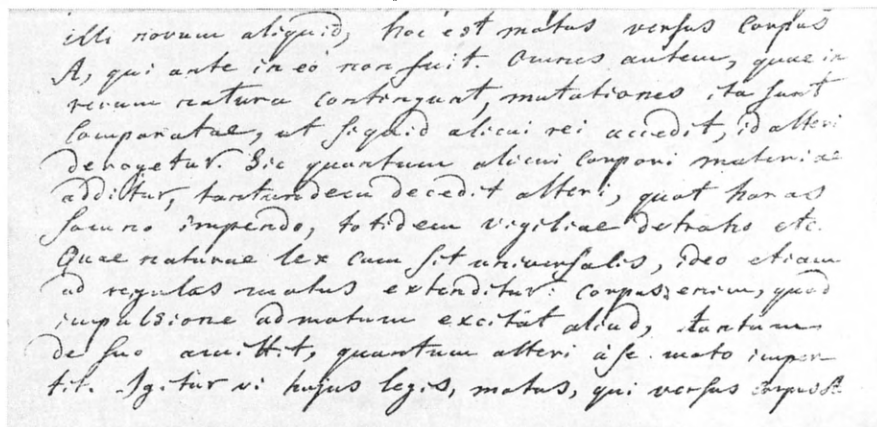 illi novum aliquid, hoc est motus versus Corpus
A, qui ante in eo non fuit. Omnes autem, quae in
rerum natura contingunt, mutationes ita sunt
Comparatae, ut si quid alicui rei accedit, id alteri
derogetur. Sic quantum alicui corpori materiae
additur, tantundem decedit alteri, quot horas
somno impendo, totidem vigiliae detraho etc.
Quae naturae lex cum sit universalis, ideo etiam
ad regulas motus extenditur: corpus enim, quod
impulsione ad motum excitat aliud, tantum
de suo amittit, quantum alteri à se moto imper
tit. Igitur vi hujus legis, motus, qui versus corpus A